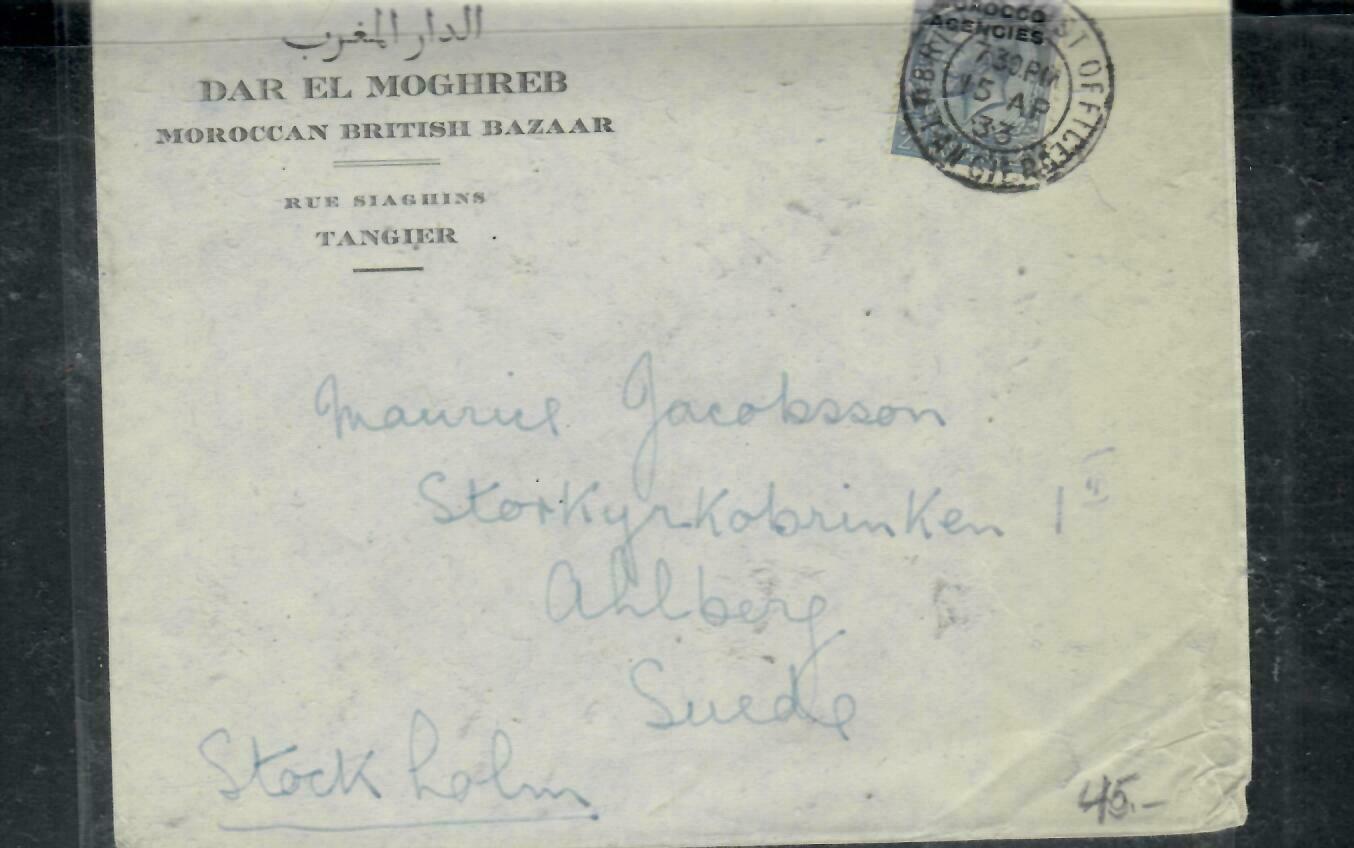 الدار المغرب
DAR EL MOGHREB
MOROCCAN BRITISH BAZAAR
RUE SIAGHINS
TANGIER
MOROCCO
AGENCIES
BRITISH POST OFFICE
TANGIER
7.30 PM
15 AP
33
Maurice Jacobsson
Storkyrkobrinken 1
Ahlberg
Suede
Stockholm
45.-